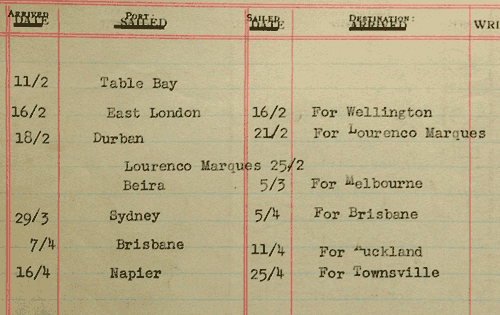 ARRIVED DATE PORT SAILED SAILED DATE DESTINATION: ARRIVED
11/2 Table Bay
16/2 East London 16/2 For Wellington
18/2 Durban 21/2 For Lourenco Marques
Lourenco Marques 25/2
Beira 5/3 For Melbourne
29/3 Sydney 5/4 For Brisbane
7/4 Brisbane 11/4 For Auckland
16/4 Napier 25/4 For Townsville